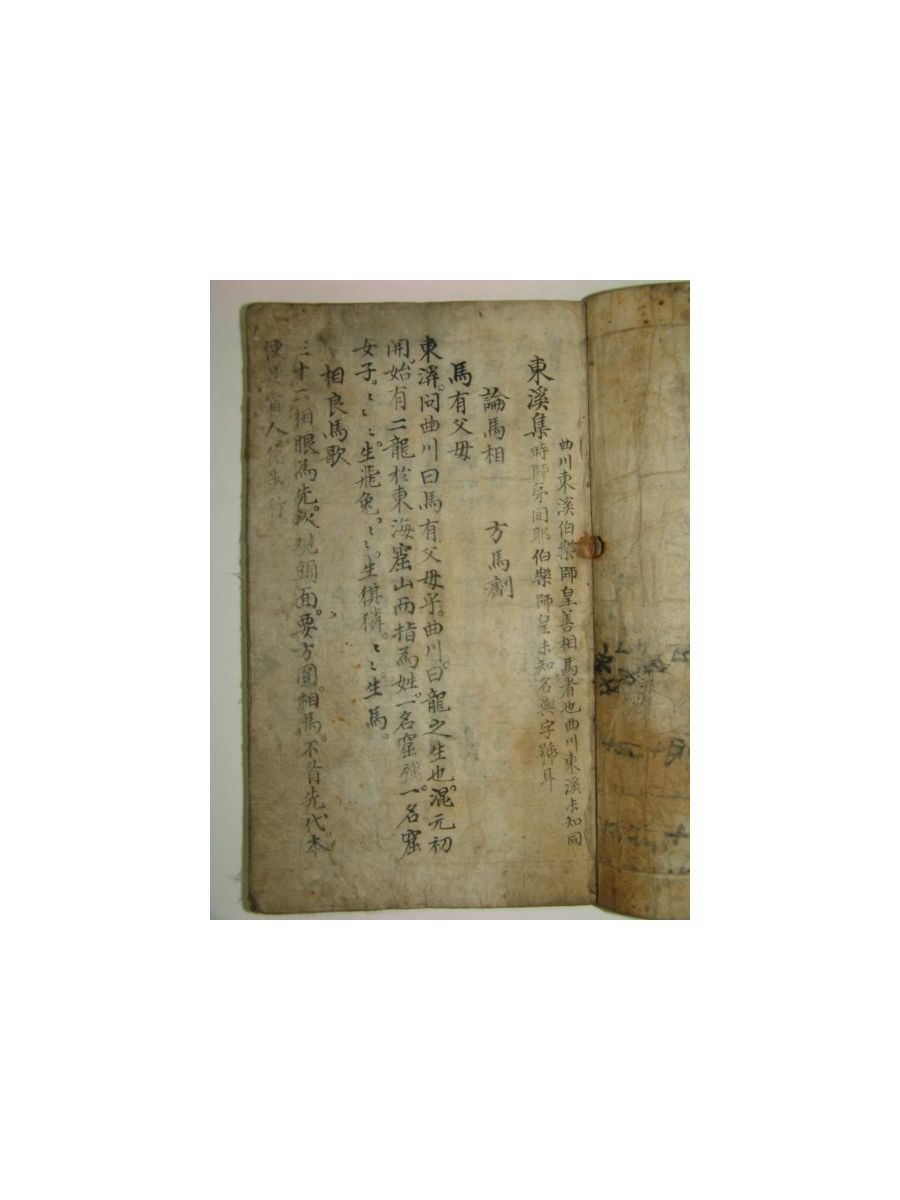 東溪集
曲川東溪伯樂師皇善相馬者也曲川東溪未知同
時師弟間耶伯樂師皇未知名與字號耳
論馬相 方馬劑
馬有父母
東溪問曲川曰馬有父母乎曲川曰龍之生也混元初
開始有二龍於東海窟山而指為姓一名窟 一名窟
女子〻〻生飛兔〻〻生猉獜〻〻生馬
相良馬歌
三十二相眼為先次觀頭面要方圓相馬不看先代本
便是 人信步行